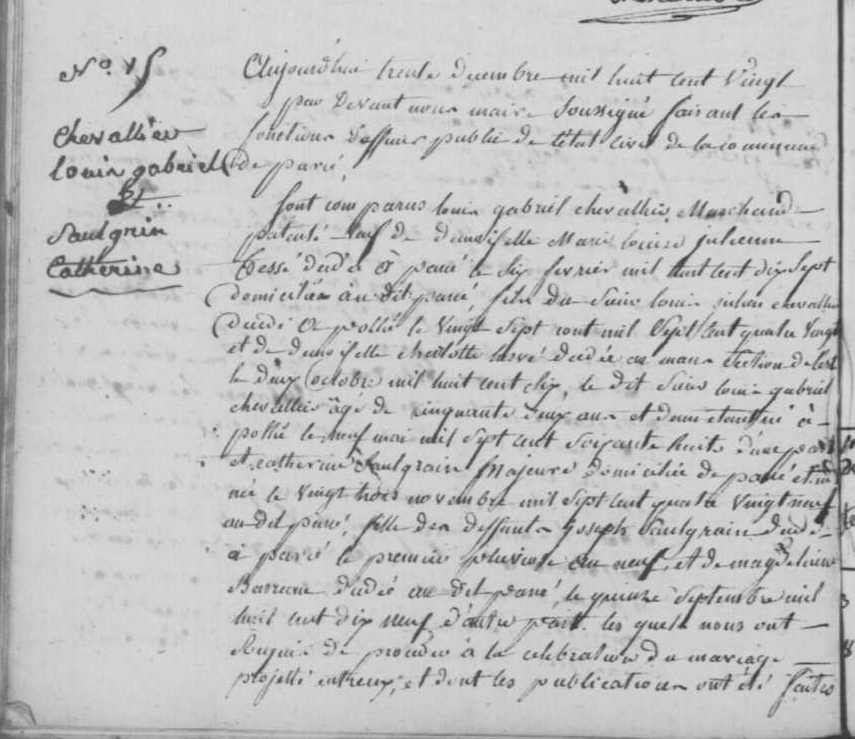 N.° 15
Chevallier
Louis gabriel
Et..
Saulgrin
Catherine
Aujourd'hui trente decembre mil huit cent vingt
par devant nous maire soussigné faisant les
fonctions d'officier public de l'état civil de la commune
de parcé,
sont comparus louis gabriel chevallier Marchand
patenté veuf de demoiselle Marie louise julienne
décédée à parcé le six fevrier mil huit cent dix sept
domicilié au dit parcé, fils du sieur louis julien chevallier
décédé à poillé le vingt sept aout mil sept cent quatre vingt
et de demoiselle charlotte décédée au mans section de
le deux octobre mil huit cent six, le dit sieur louis gabriel
chevallier âgé de cinquante deux ans et demi étant né à
poillé le neuf mai mil sept cent soixante huit d'une part
et catherine Saulgrain majeure domiciliée de parcé et
née le vingt trois novembre mil sept cent quatre vingt neuf
au dit parcé, fille des deffunts joseph Saulgrain décédé
à parcé le premier pluviose an neuf, et de magdeleine
décédée au dit parcé, le quinze septembre mil
huit cent dix neuf d'autre part. les quels nous ont
requis de procéder à la celebration du mariage
projetté entreux, et dont les publications ont été faites